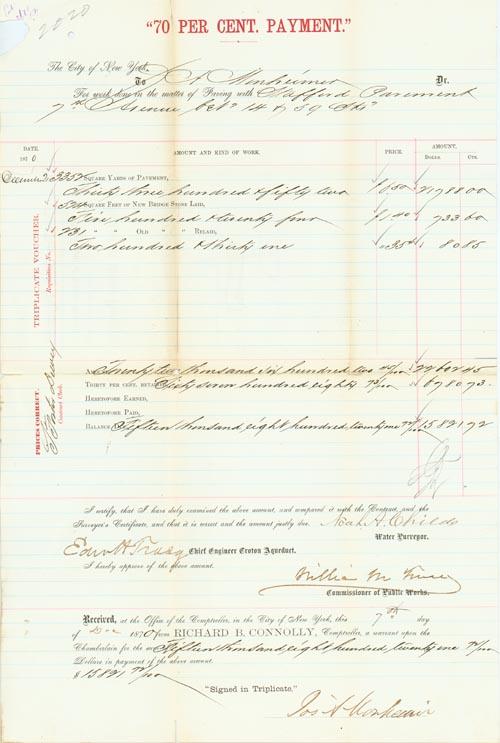 2020
"70 PER CENT. PAYMENT."
The City of New York.
To J. A. Monheimer Dr.
For work done in the matter of Paving with Stafford Pavement
7th Avenue bet. 14 & 59 Sts
DATE. AMOUNT AND KIND OF WORK. PRICE. AMOUNT.
1870 DOLLS. CTS.
December 3352 SQUARE YARDS OF PAVEMENT,
Thirty three hundred & fifty two 6.50 21788 00
524 SQUARE FEET OF NEW BRIDGE STONE LAID,
Five hundred & twenty four 1.40 733 60
231 " " OLD " " RELAID,
Two hundred & thirty one 35 80 85
TRIPLICATE VOUCHER.
Requisition No.
PRICES CORRECT.
Contract Clerk.
Twenty two thousand six hundred two 45/100 22602 45
THIRTY PER CENT. Sixty seven hundred eighty 73/100 6780 73
HERETOFORE EARNED,
HERETOFORE PAID,
BALANCE Fifteen thousand eight hundred twenty one 72/100 15821 72
I certify, that I have duly examined the above amount, and compared it with the Contract, and the
Surveyor's Certificate, and that it is correct and the amount justly due. Noah A. Childs
Water Purveyor.
Edw H Tracy Chief Engineer Croton Aqueduct.
I hereby approve of the above amount.
William M Tweed
Commissioner of Public Works.
Received, at the Office of the Comptroller, in the City of New York, this 7th day
of Dec 1870 from RICHARD B. CONNOLLY, Comptroller, a warrant upon the
Chamberlain for the Fifteen thousand eight hundred twenty one 72/100
Dollars in payment of the above amount.
$15821 72/100
"Signed in Triplicate,"